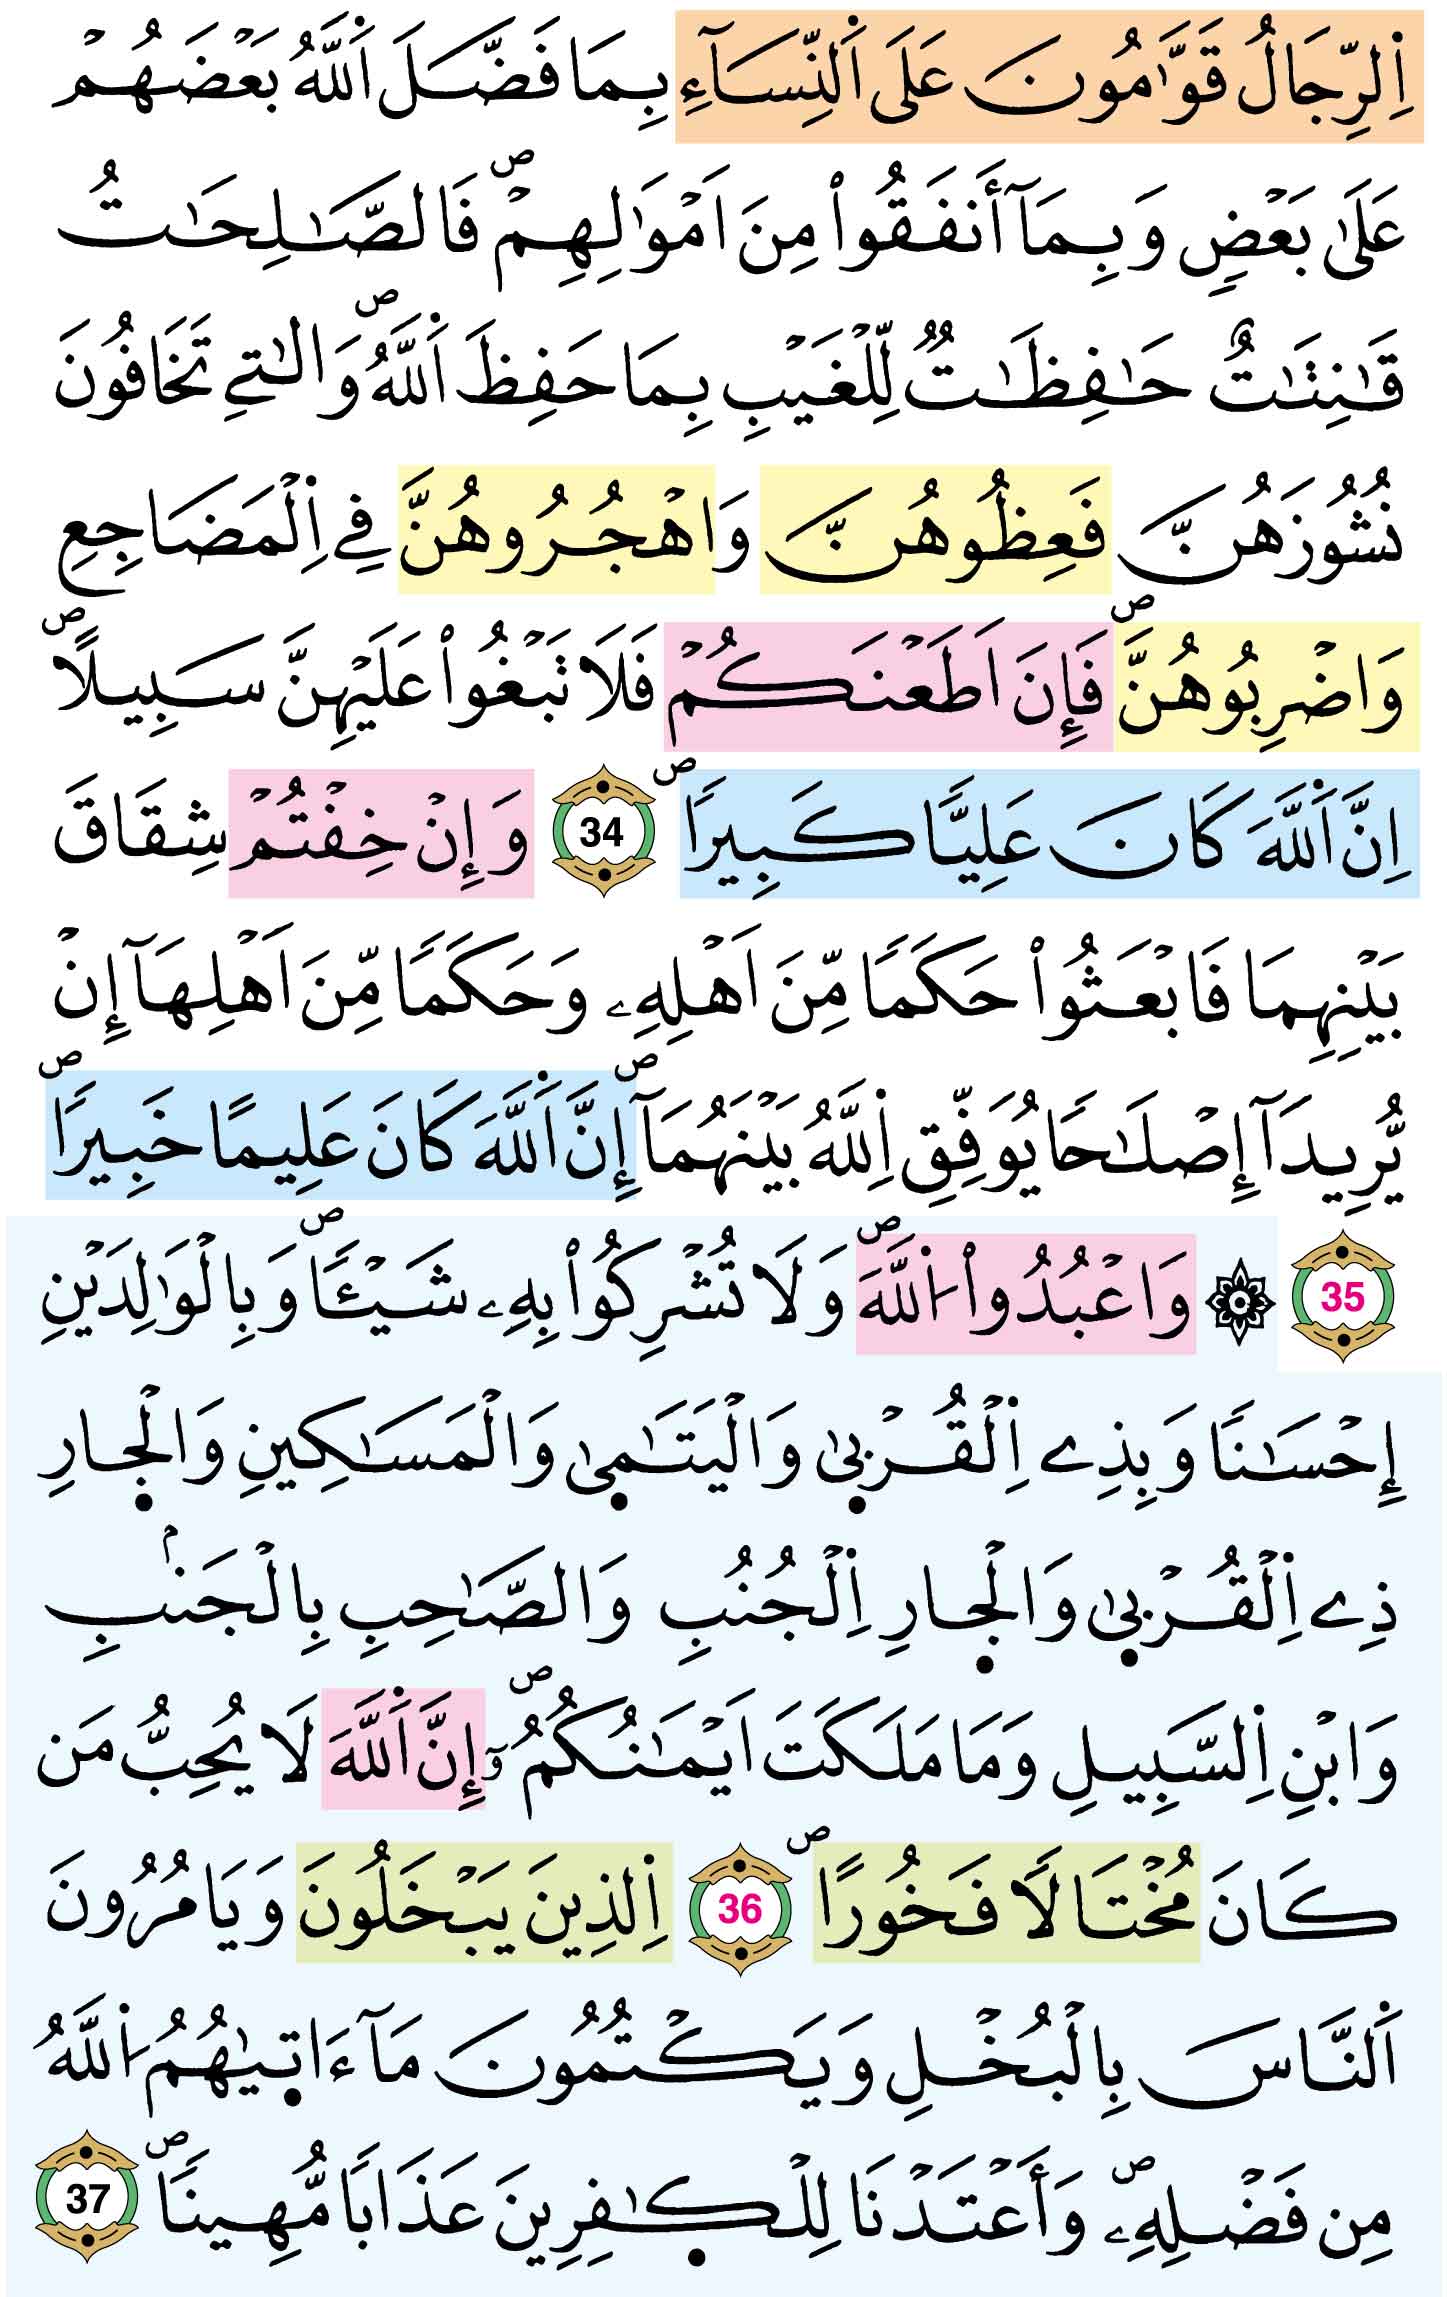 اِ۬لرِّجَالُ قَوَّٰمُونَ عَلَى اَ۬لنِّسَآءِ بِمَا فَضَّلَ اَ۬للَّهُ بَعْضَهُمْ
عَلَىٰ بَعْضٖ وَبِمَآ أَنفَقُواْ مِنَ اَمْوَٰلِهِمْۖ فَالصَّٰلِحَٰتُ
قَٰنِتَٰتٌ حَٰفِظَٰتٞ لِّلْغَيْبِ بِمَا حَفِظَ اَ۬للَّهُۖ وَالٰتِے تَخَافُونَ
نُشُوزَهُنَّ فَعِظُوهُنَّ وَاهْجُرُوهُنَّ فِے اِ۬لْمَضَاجِعِ
وَاضْرِبُوهُنَّۖ فَإِنَ اَطَعْنَكُمْ فَلَا تَبْغُواْ عَلَيْهِنَّ سَبِيلاًۖ
اِنَّ اَ۬للَّهَ كَانَ عَلِيّاٗ كَبِيراٗۖ 34 وَإِنْ خِفْتُمْ شِقَاقَ
بَيْنِهِمَا فَابْعَثُواْ حَكَماٗ مِّنَ اَهْلِهِۦ وَحَكَماٗ مِّنَ اَهْلِهَآ إِنْ
يُّرِيدَآ إِصْلَٰحاٗ يُوَفِّقِ اِ۬للَّهُ بَيْنَهُمَآۖ إِنَّ اَ۬للَّهَ كَانَ عَلِيماً خَبِيراٗۖ
35 ۞ وَاعْبُدُواْ اُ۬للَّهَۖ وَلَا تُشْرِكُواْ بِهِۦ شَيْـٔاٗۖ وَبِالْوَٰلِدَيْنِ
إِحْسَٰناٗ وَبِذِے اِ۬لْقُرْب۪ىٰ وَالْيَتَٰم۪ىٰ وَالْمَسَٰكِينِ وَالْج۪ارِ
ذِے اِ۬لْقُرْب۪ىٰ وَالْج۪ارِ اِ۬لْجُنُبِ وَالصَّٰحِبِ بِالْجَنۢبِ
وَابْنِ اِ۬لسَّبِيلِ وَمَا مَلَكَتَ اَيْمَٰنُكُمُۥٓۖ إِنَّ اَ۬للَّهَ لَا يُحِبُّ مَن
كَانَ مُخْتَالاٗ فَخُوراًۖ 36 اِ۬لذِينَ يَبْخَلُونَ وَيَامُرُونَ
اَ۬لنَّاسَ بِالْبُخْلِ وَيَكْتُمُونَ مَآ ءَات۪يٰهُمُ اُ۬للَّهُ
مِن فَضْلِهِۦۖ وَأَعْتَدْنَا لِلْكٰ۪فِرِينَ عَذَاباٗ مُّهِيناٗۖ 37